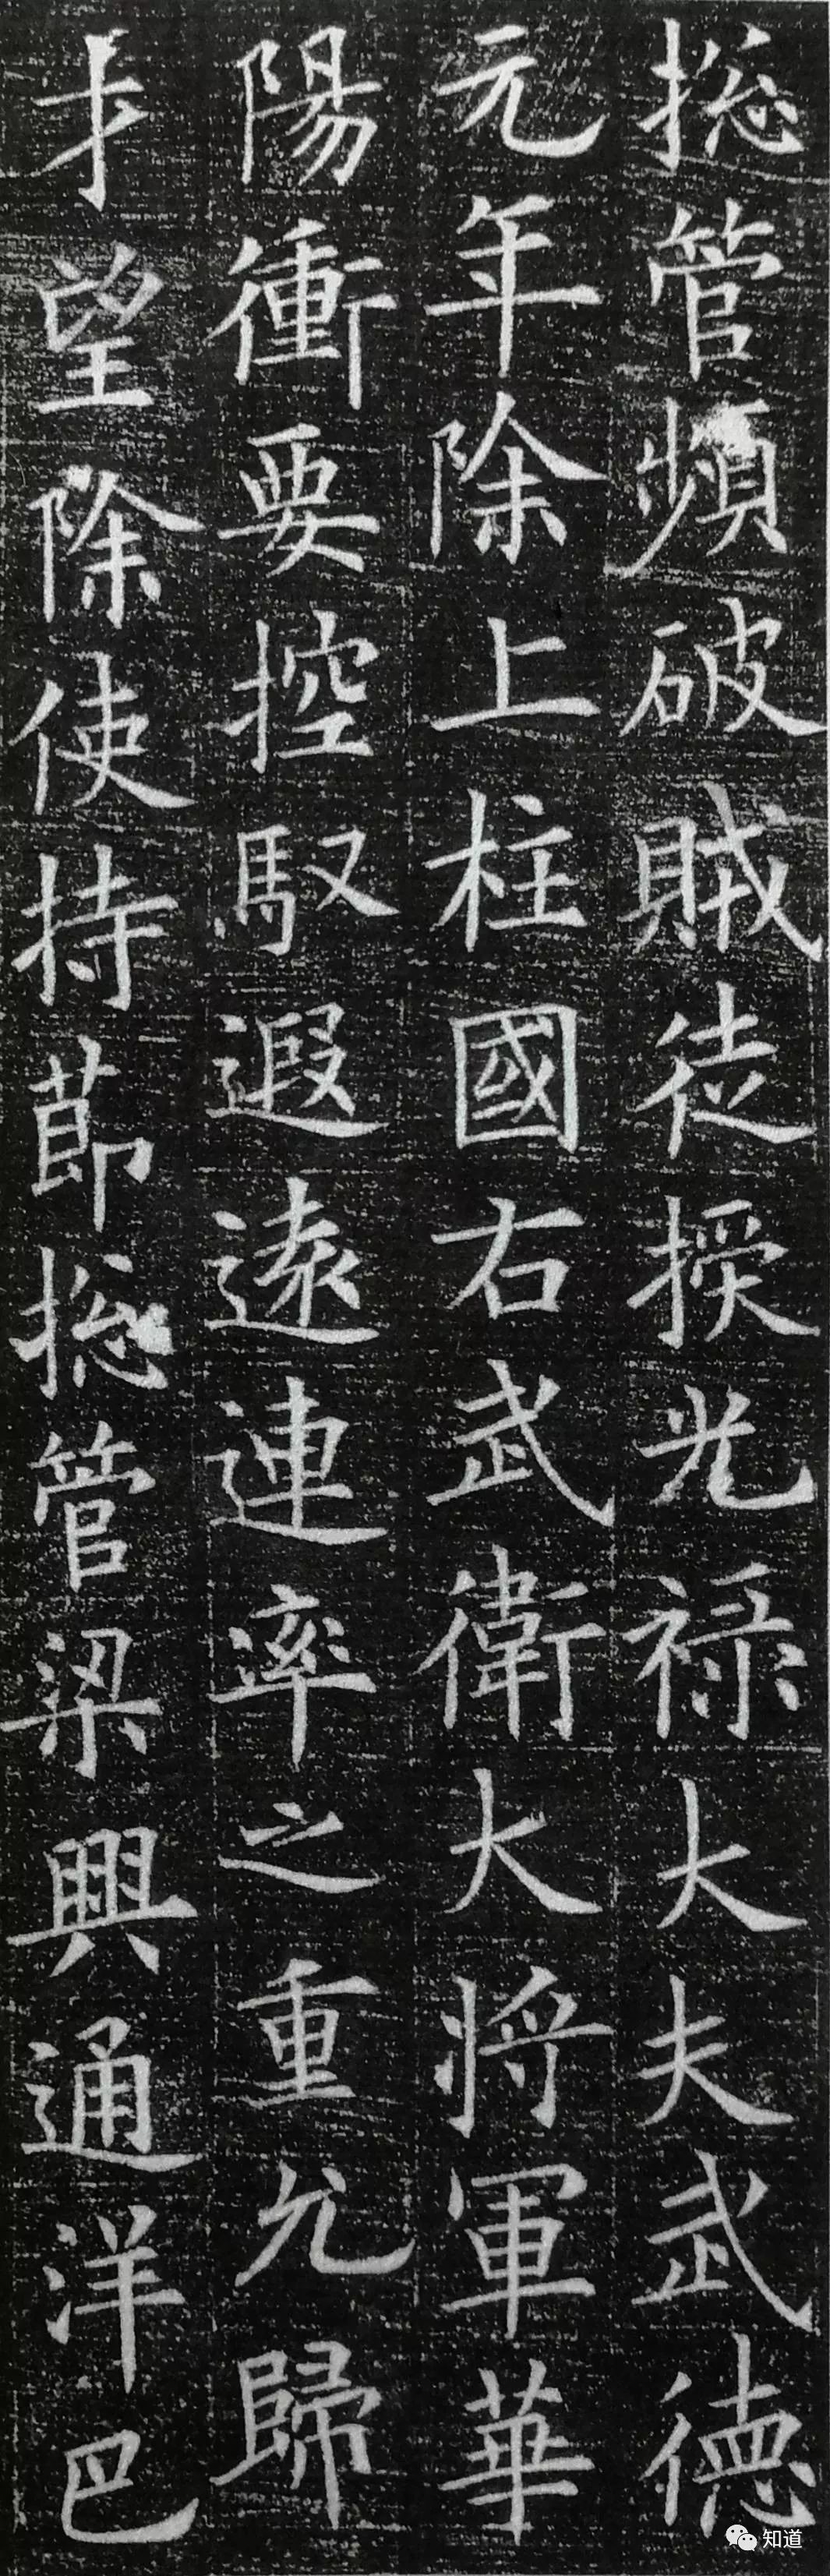 揔管頻破賊徒授光祿大夫武德
元年除上柱國右武衛大將軍華
陽衝要控馭遐遠連率之重允歸
才望除使持節揔管梁興通洋巴
知道